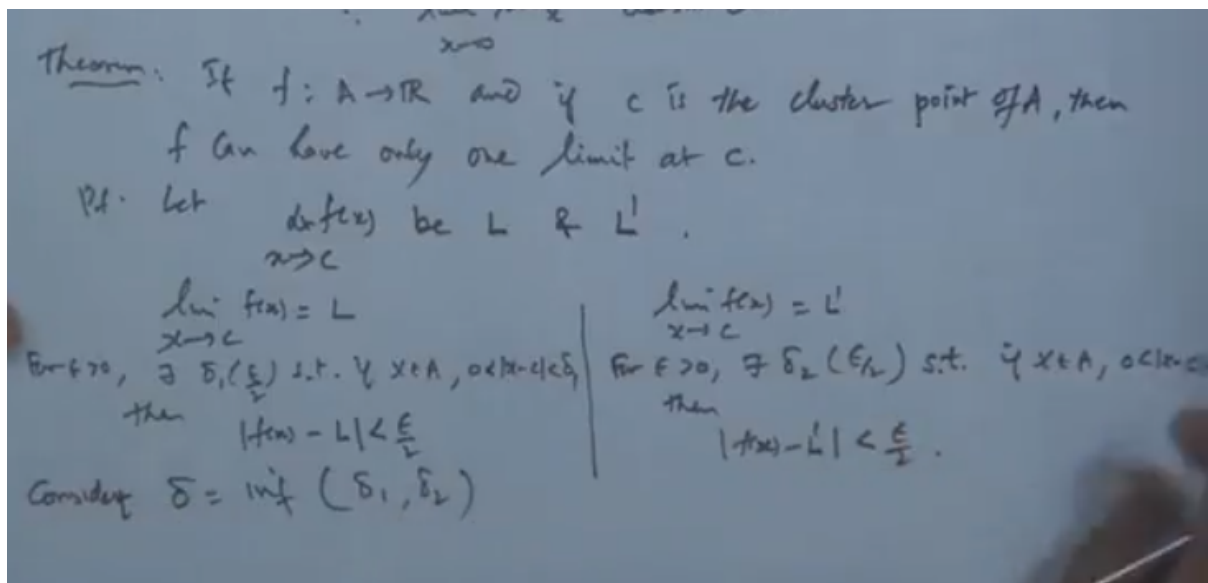 x→0
Theorem: If f : A → ℝ and if c is the cluster point of A, then
f can have only one limit at c.
Pf. Let lim f(x) be L & L'.
x→c
lim f(x) = L
x→c
For ε>0, ∃ δ₁(ε/2) s.t. if x∈A, 0<|x-c|<δ₁
then
|f(x) - L| < ε/2
lim f(x) = L'
x→c
For ε>0, ∃ δ₂(ε/2) s.t. if x∈A, 0<|x-c
then
|f(x) - L'| < ε/2.
Consider δ = inf (δ₁, δ₂)